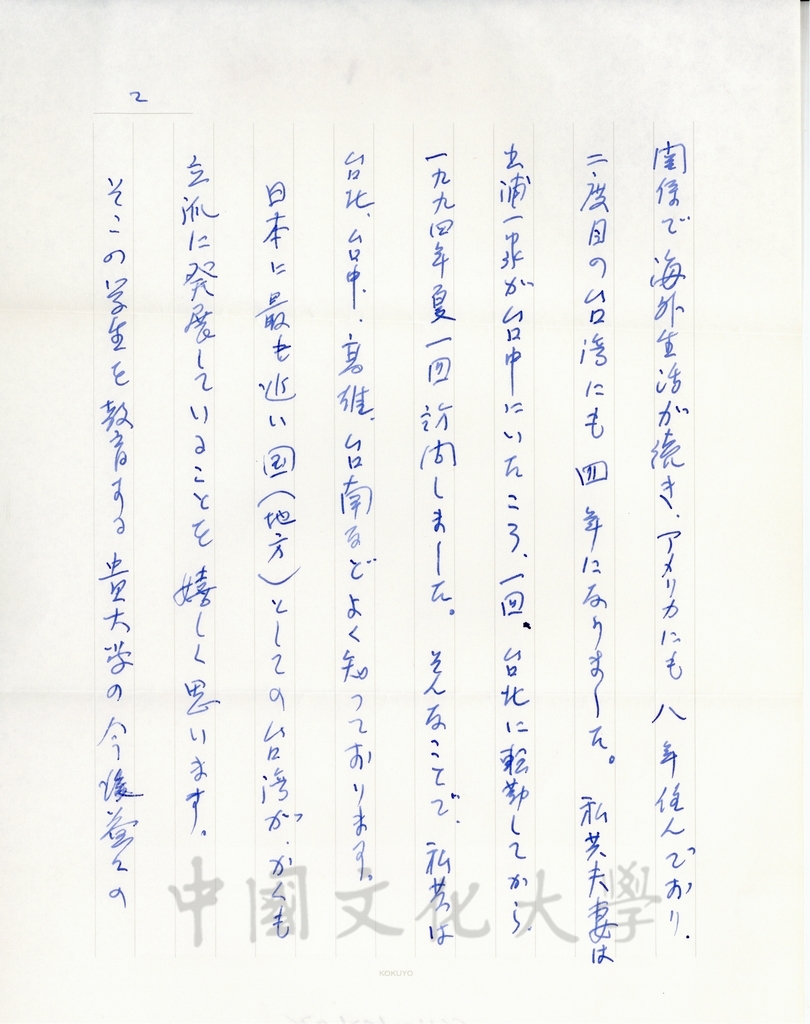 2
関係で海外生活が続き、アメリカにも八年住んでおり、
二度目の台湾にも四年になりました。私共夫妻は
土浦一家が台中にいたころ、一回、台北に転勤してから、
一九九四年夏一回訪問しました。そんなことで、私共は
台北、台中、高雄、台南などよく知っております。
日本に最も近い国(地方)としての台湾が、かくも
立派に発展していることを嬉しく思います。
そこの学生を教育する貴大学の今後益々の
中國文化大學
KOKUYO